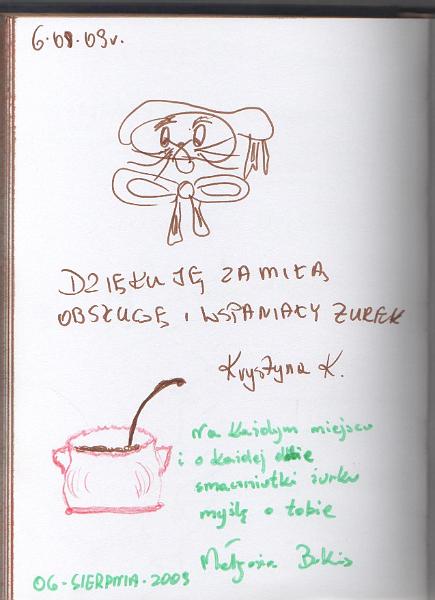 6.08.09r.
DZIĘKUJĘ ZA MIŁĄ
OBSŁUGĘ I WSPANIAŁY ŻUREK
Krystyna K.
Na każdym miejscu
i o każdej dobie
smaczniutki żurku
myślę o tobie
Małgosia
06-SIERPNIA-2009